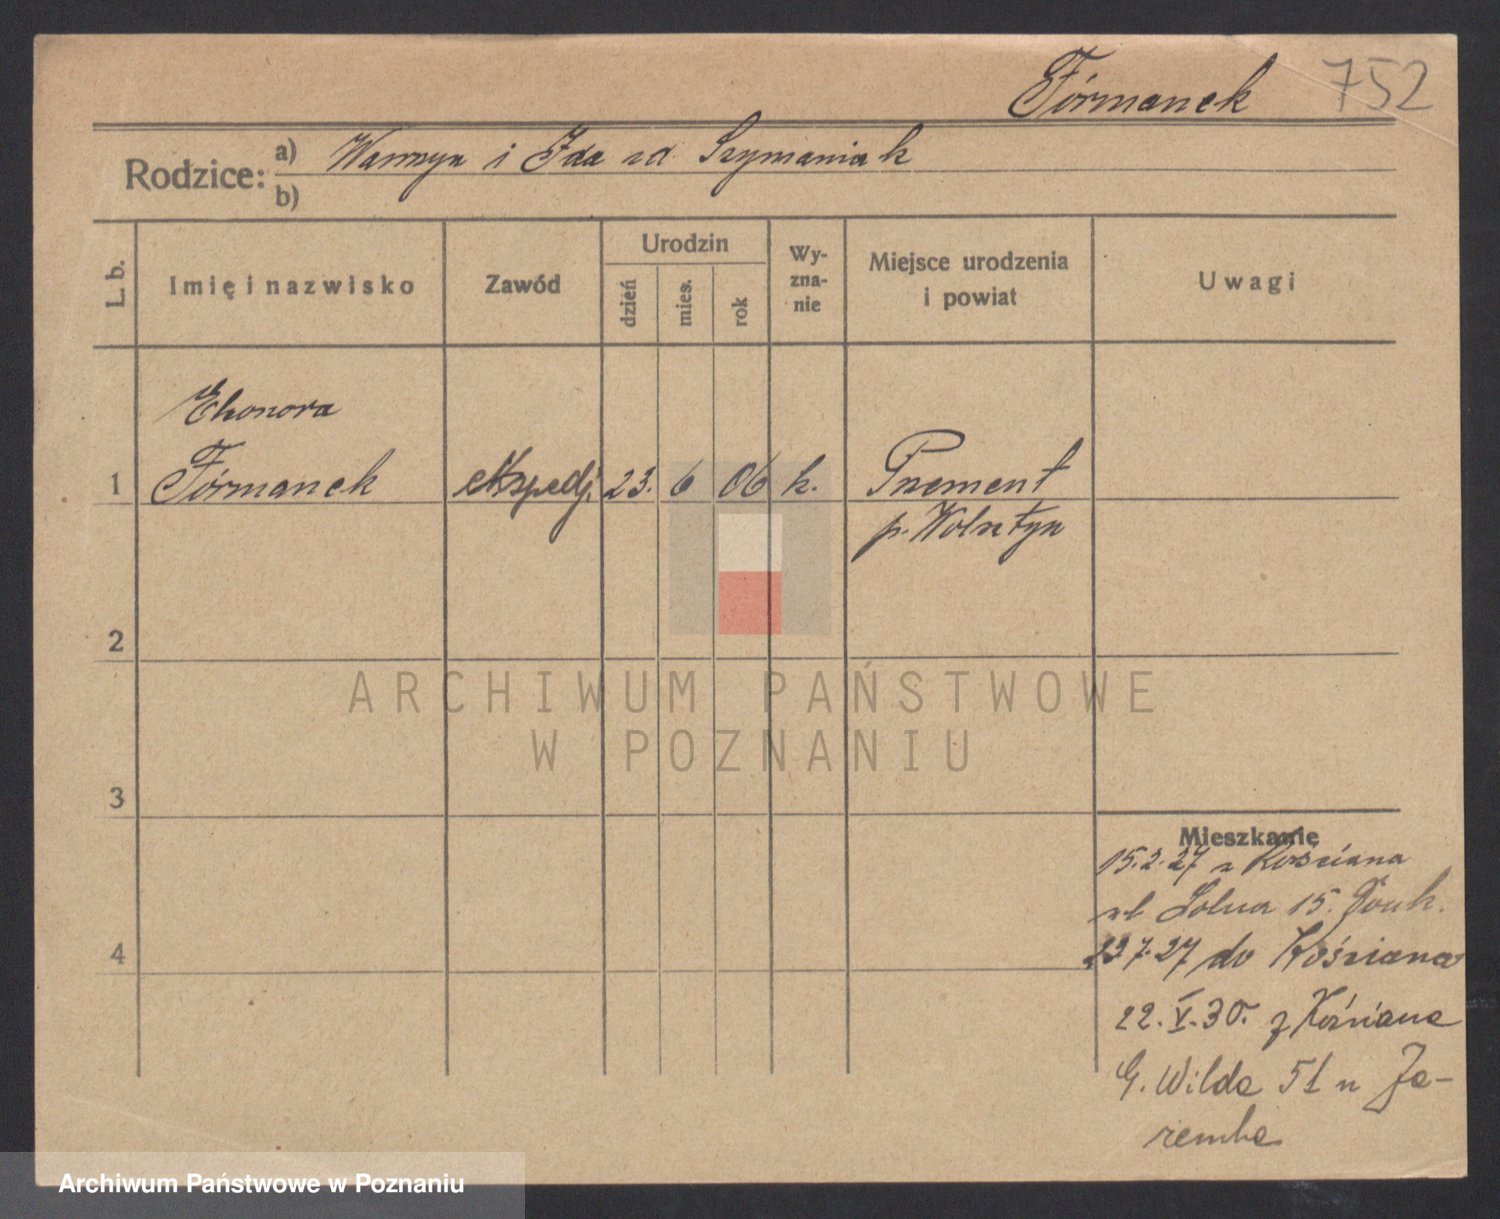 Fórmanek 752
Rodzice: a) Wawrzyn i Ida zd. Szymaniak
b)
L. b. Imię i nazwisko Zawód Urodzin dzień mies. rok Wyznanie Miejsce urodzenia i powiat Uwagi
Eleonora
1 Fórmanek ekspedj. 23. 6 06 k. Przement
p. Wolsztyn
2
ARCHIWUM PAŃSTWOWE
W POZNANIU
3
Mieszkanie
15.2.27 z Kościana
15.
23.7.27 do Kościana
4
22.V.30. z Kościana
G. Wilda 51 u Za-
remba
Archiwum Państwowe w Poznaniu